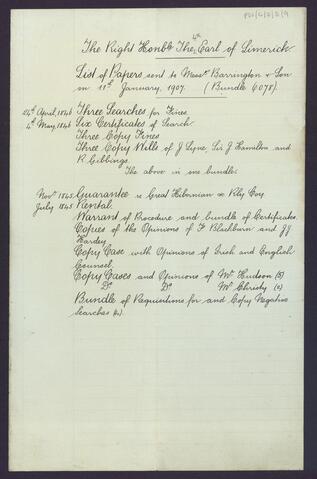 The Right Honble The 4th Earl of Limerick
List of Papers sent to Messrs Barrington & Son
on 11th January, 1907. (Bundle 6078).
24th April, 1846 Three Searches for Fines
4th May, 1846 Six Certificates of Search
Three Copy Fines
Three Copy Wills of J Lyne, Sir J Hamilton and
R Gibbings.
The above in one bundle
Novr 1845 Guarantee re Great Hibernian &c Rly Coy.
July 1845 Rental.
Warrant of Procedure and bundle of Certificates.
Copies of the Opinions of F Blackburn and JJ
Hardey
Copy Case with Opinions of Irish and English
Counsel.
Copy Cases and Opinions of Mr Hudson (3)
Do Do Mr Christy (2)
Bundle of Requisitions for and Copy Negative
Searches